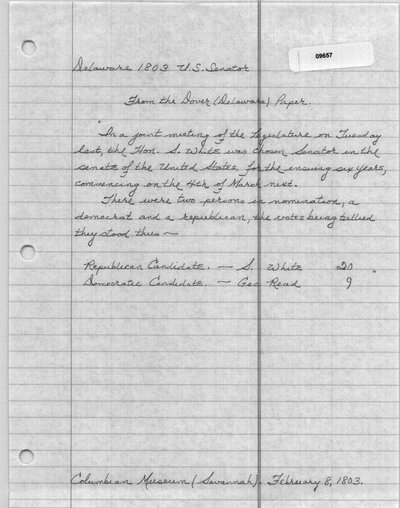 09657
Delaware 1803 U.S. Senator
From the Dover (Delaware) Paper.
"In a joint meeting of the Legislature on Tuesday
last, the Hon. S. White was chosen Senator in the
senate of the United States, for the insuing six years,
commencing on the 4th of March next.
There were two persons in nomination, a
democrat and a republican, the votes being tallied
they stood thus —
Republican Candidate. — S. White 20 "
Democratic Candidate. — Geo. Read 9
Columbian Museum (Savannah). February 8, 1803.